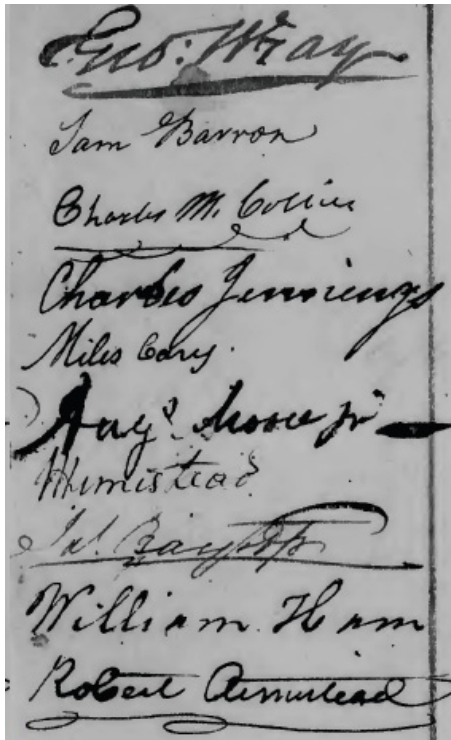 Geo: Wray
Sam Barron
Charles M. Collier
Charles Jennings
Miles Cary.
Augt. Moore Jr
Wm Armistead
William Ham
Robert Armistead